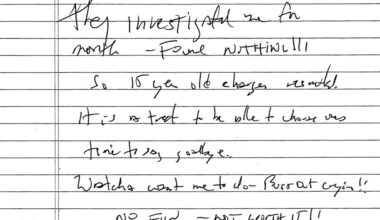 They investigated me for
month – Found NOTHING!!!
So 16 year old charges resulted.
It is a treat to be able to choose ones
time to say goodbye.
Watcha want me to do – Burst out crying!!
NO FUN – NOT WORTH IT!!